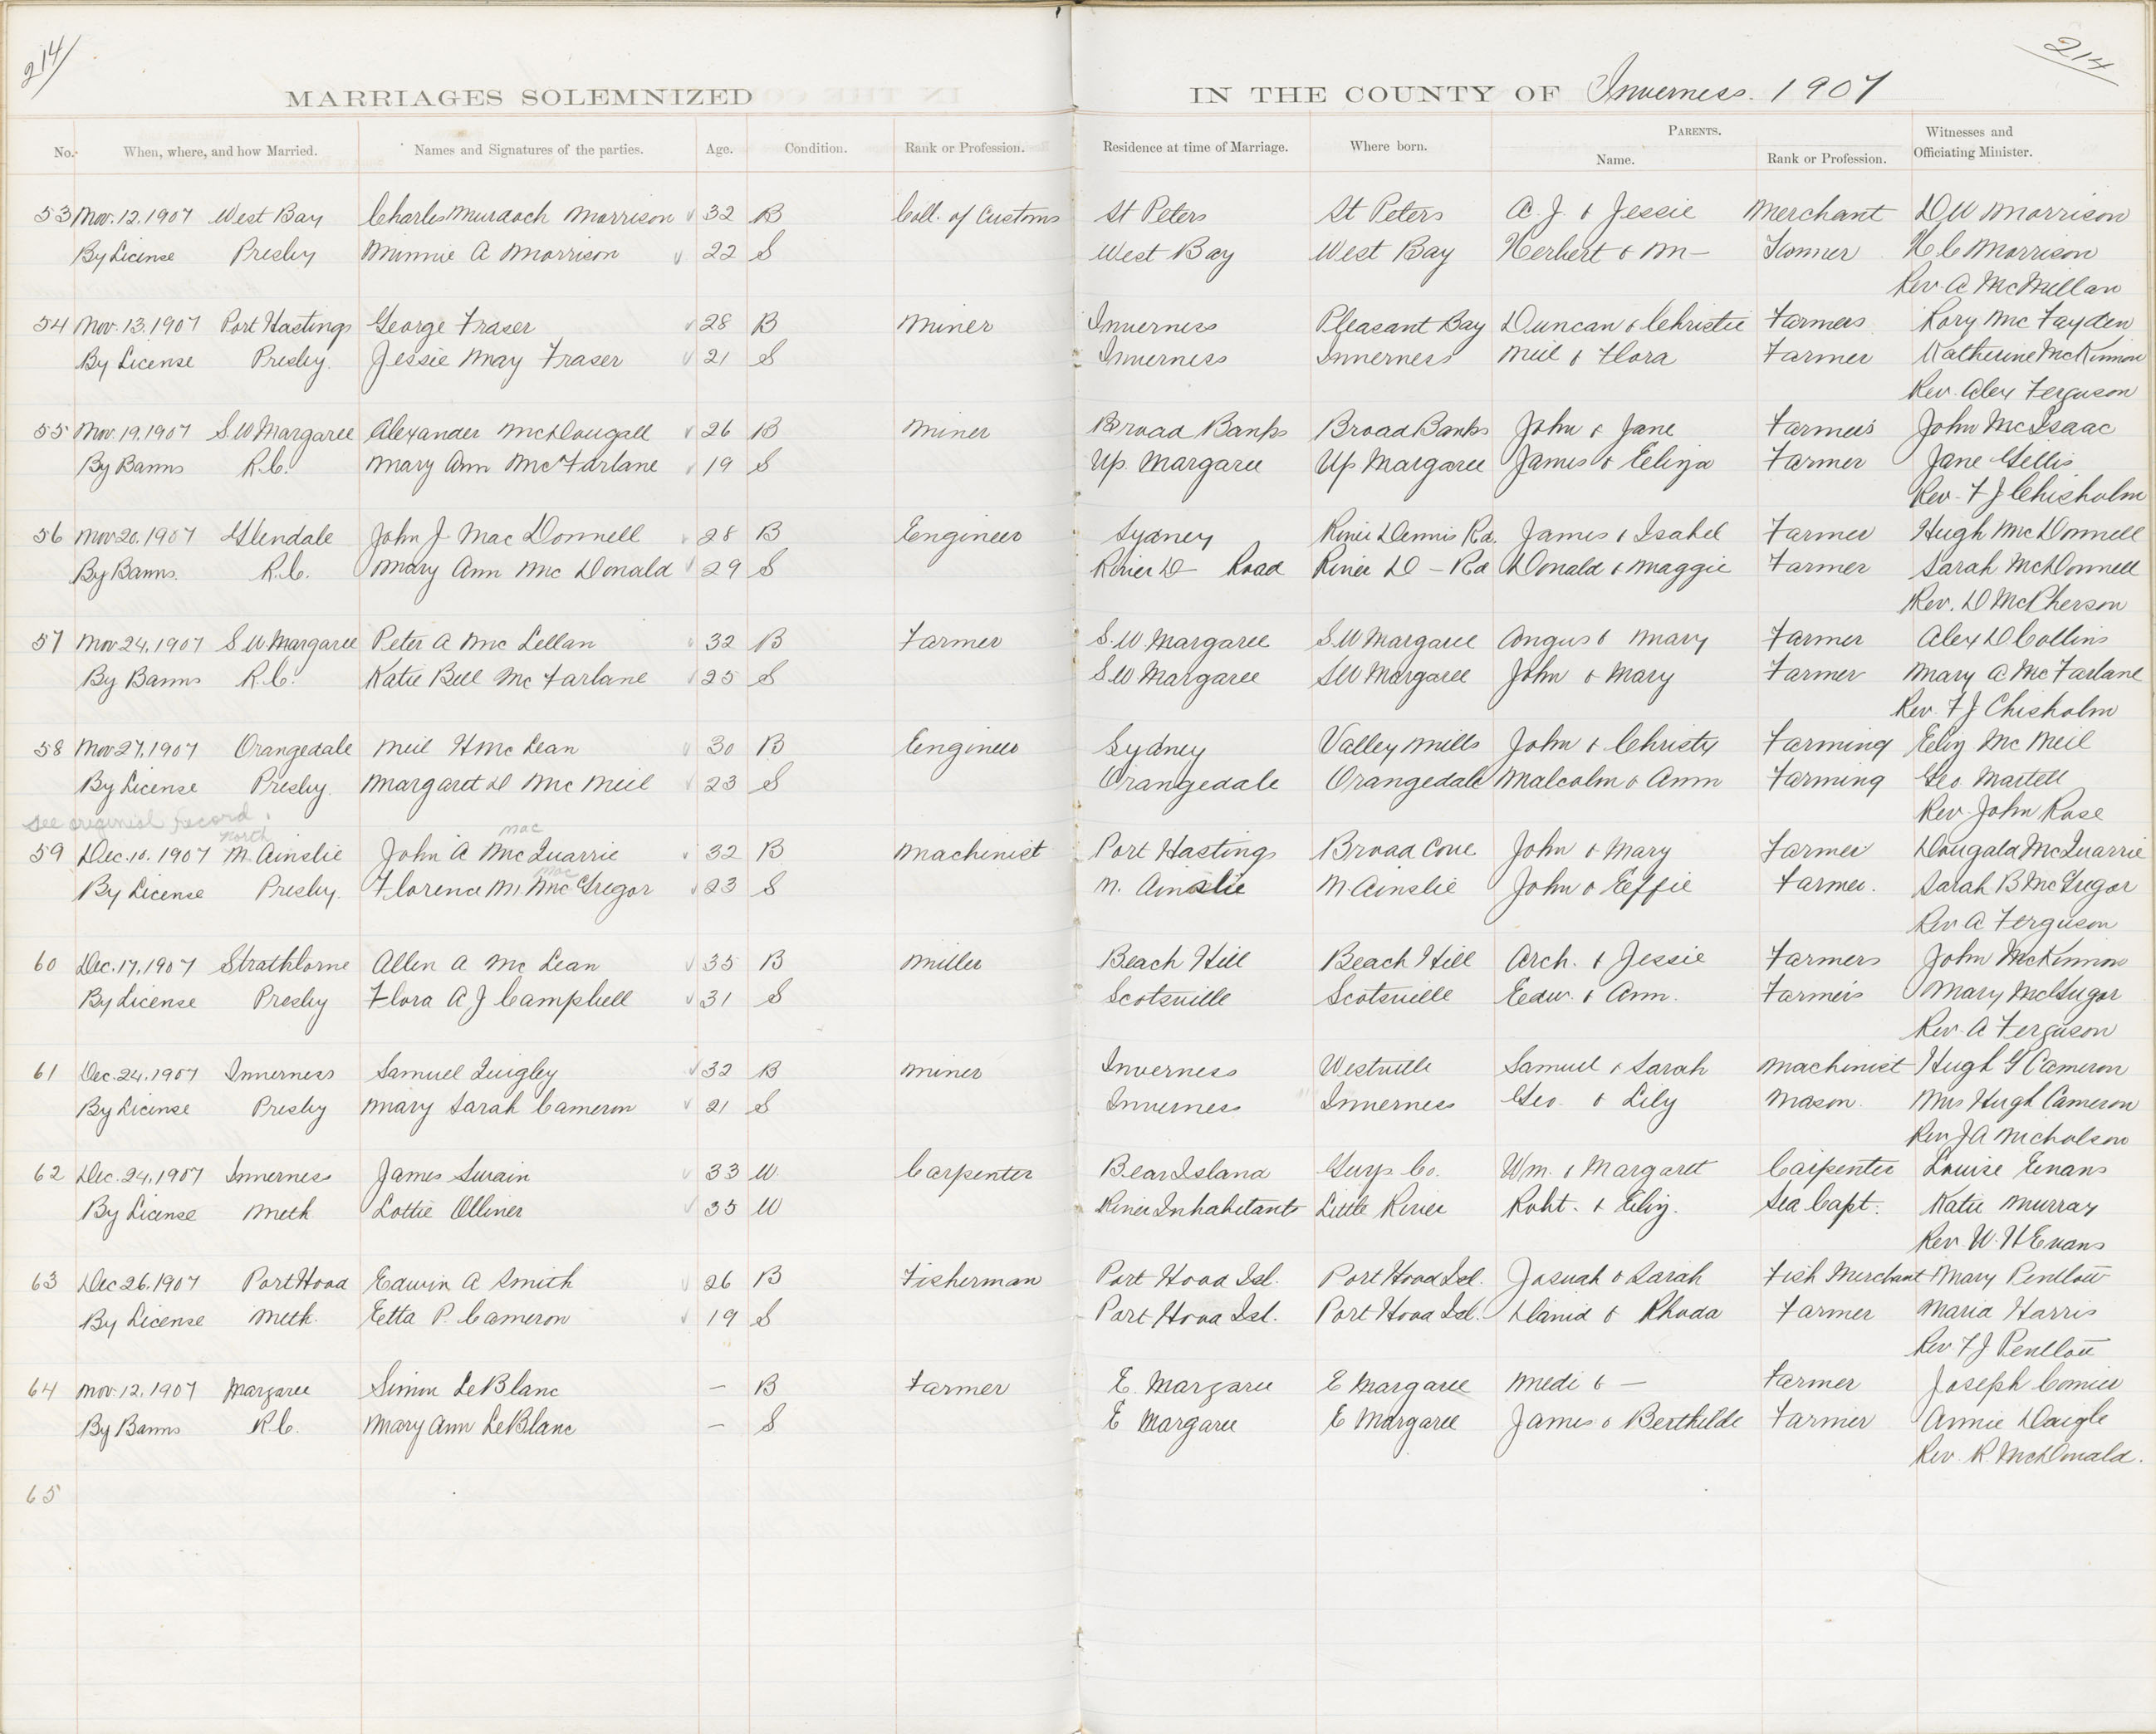 214
214
MARRIAGES SOLEMNIZED IN THE COUNTY OF Inverness. 1907
No. When, where, and how Married. Names and Signatures of the parties. Age. Condition. Rank or Profession. Residence at time of Marriage. Where born. PARENTS. Name. Rank or Profession. Witnesses and Officiating Minister.
53 Nov. 12. 1907 West Bay Charles Murdoch Morrison 32 B Coll. of Customs St Peters St Peters A. J. & Jessie Merchant D W Morrison
By License Presby Minnie A Morrison 22 S West Bay West Bay Herbert & M— Farmer H C Morrison
Rev. A McMillan
54 Nov. 13. 1907 Port Hastings George Fraser 28 B Miner Inverness Pleasant Bay Duncan & Christie Farmers Rory Mc Fayden
By License Presby. Jessie May Fraser 21 S Inverness Inverness Neil & Flora Farmer Katherine McKinnon
Rev. Alex Ferguson
55 Nov. 19. 1907 S. W Margaree Alexander McDougall 26 B Miner Broad Banks Broad Banks John & Jane Farmers John McIsaac
By Banns R.C. Mary Ann McFarlane 19 S Up. Margaree Up Margaree James & Eliza Farmer Jane Gillis
Rev. F J Chisholm
56 Nov 20. 1907 Glendale John J. Mac Donnell 28 B Engineer Sydney River Dennis Rd. James & Isabel Farmer Hugh McDonnell
By Banns. R.C. Mary Ann Mc Donald 29 S River D— Road River D— Rd Donald & Maggie Farmer Sarah McDonnell
Rev. D McPherson
57 Nov 24, 1907 S W Margaree Peter A Mc Lellan 32 B Farmer S. W. Margaree S. W Margaree Angus & Mary Farmer Alex D Collins
By Banns R.C. Katie Bell Mc Farlane 25 S S. W Margaree SW Margaree John & Mary Farmer Mary A McFarlane
Rev. F J Chisholm
58 Nov 27, 1907 Orangedale Neil H Mc Lean 30 B Engineer Sydney Valley Mills John & Christy Farming Eliz Mc Neil
By License Presby. Margaret D Mc Neil 23 S Orangedale Orangedale Malcolm & Ann Farming Geo. Martell
Rev. John Rose
see original record.
north mac
59 Dec. 10. 1907 N. Ainslie John A McQuarrie 32 B Machinist Port Hastings Broad Cove John & Mary Farmer Dougald McQuarrie
mac
By License Presby. Florence M. McGregor 23 S N. Ainslie N. Ainslie John & Effie Farmer. Sarah B McGregor
Rev A Ferguson
60 Dec. 17, 1907 Strathlorne Allen A Mc Lean 35 B Miller Beach Hill Beach Hill Arch. & Jessie Farmers John McKinnon
By License Presby Flora A J Campbell 31 S Scotsville Scotsville Edw. & Ann. Farmers Mary McGregor
Rev. A Ferguson
61 Dec. 24. 1907 Inverness Samuel Quigley 32 B Miner Inverness Westville Samuel & Sarah Machinist Hugh G Cameron
By License Presby Mary Sarah Cameron 21 S Inverness Inverness Geo. & Lily Mason. Mrs Hugh Cameron
Rev J A Nicholson
62 Dec. 24, 1907 Inverness James Swain 33 W. Carpenter Bear Island Guys. Co. Wm. & Margaret Carpenter Louise Evans
By License Meth Lottie Olliver 35 W River Inhabitants Little River Robt. & Eliz. Sea Capt. Katie Murray
Rev. W. H Evans
63 Dec 26. 1907 Port Hood Edwin A Smith 26 B Fisherman Port Hood Isl. Port Hood Isl. Josuah & Sarah Fish Merchant Mary Penllott
By License Meth. Etta P. Cameron 19 S Port Hood Isl. Port Hood Isl. David & Rhoda Farmer Maria Harris
Rev. F J Penllott
64 Nov. 12, 1907 Margaree Simon LeBlanc — B Farmer E. Margaree E Margaree Medi & — Farmer Joseph Comier
By Banns R.C. Mary Ann LeBlanc — S E Margaree E Margaree James & Berthilde Farmer Annie Daigle
Rev. R. McDonald.
65